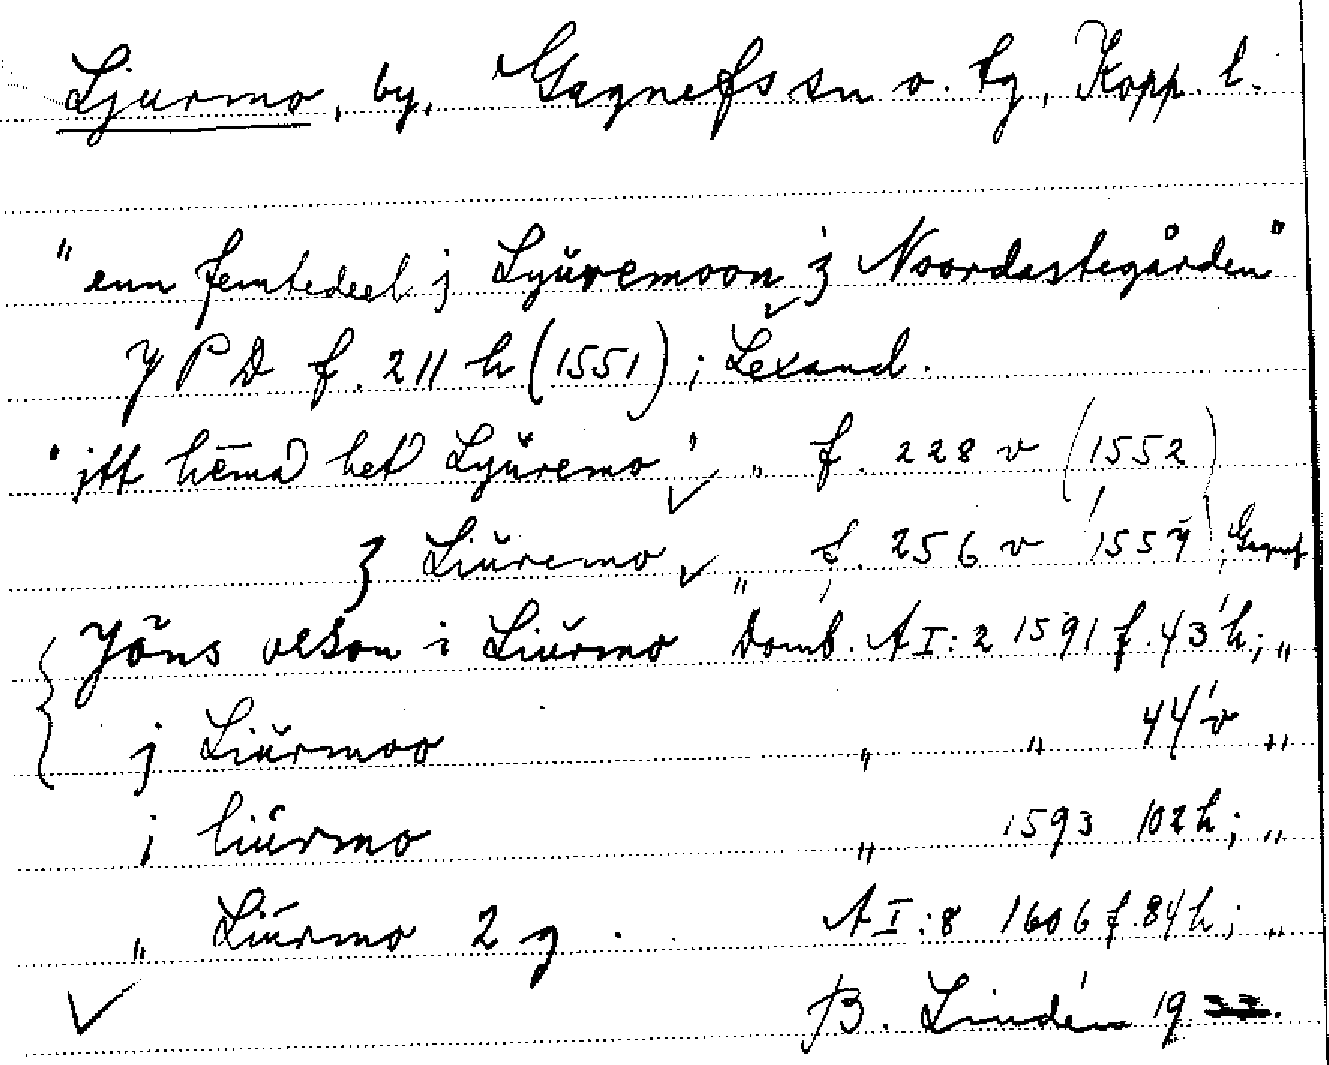 Ljurmo, by, Gagnefs sn o. tg, Kopp. l.
"enn femtedeel j Lyŭremoon ʒ Noordastegården"
J P D f. 211 h (1551); Lexand.
"jtt hēmā het Lyŭremo" „ f. 228 v (1552)
ʒ Liŭremo „ f. 256 v 1554), Gagnef
Jöns olson i Liŭrmo Domb. A I:2 1591 f. 43 h; „
j Liŭrmoo „ „ 44 v „
i liŭrmo „ 1593 102 h; „
„ Liŭrmo 2 g. A I:8 1606 f. 84 h; „
B. Lindén 19